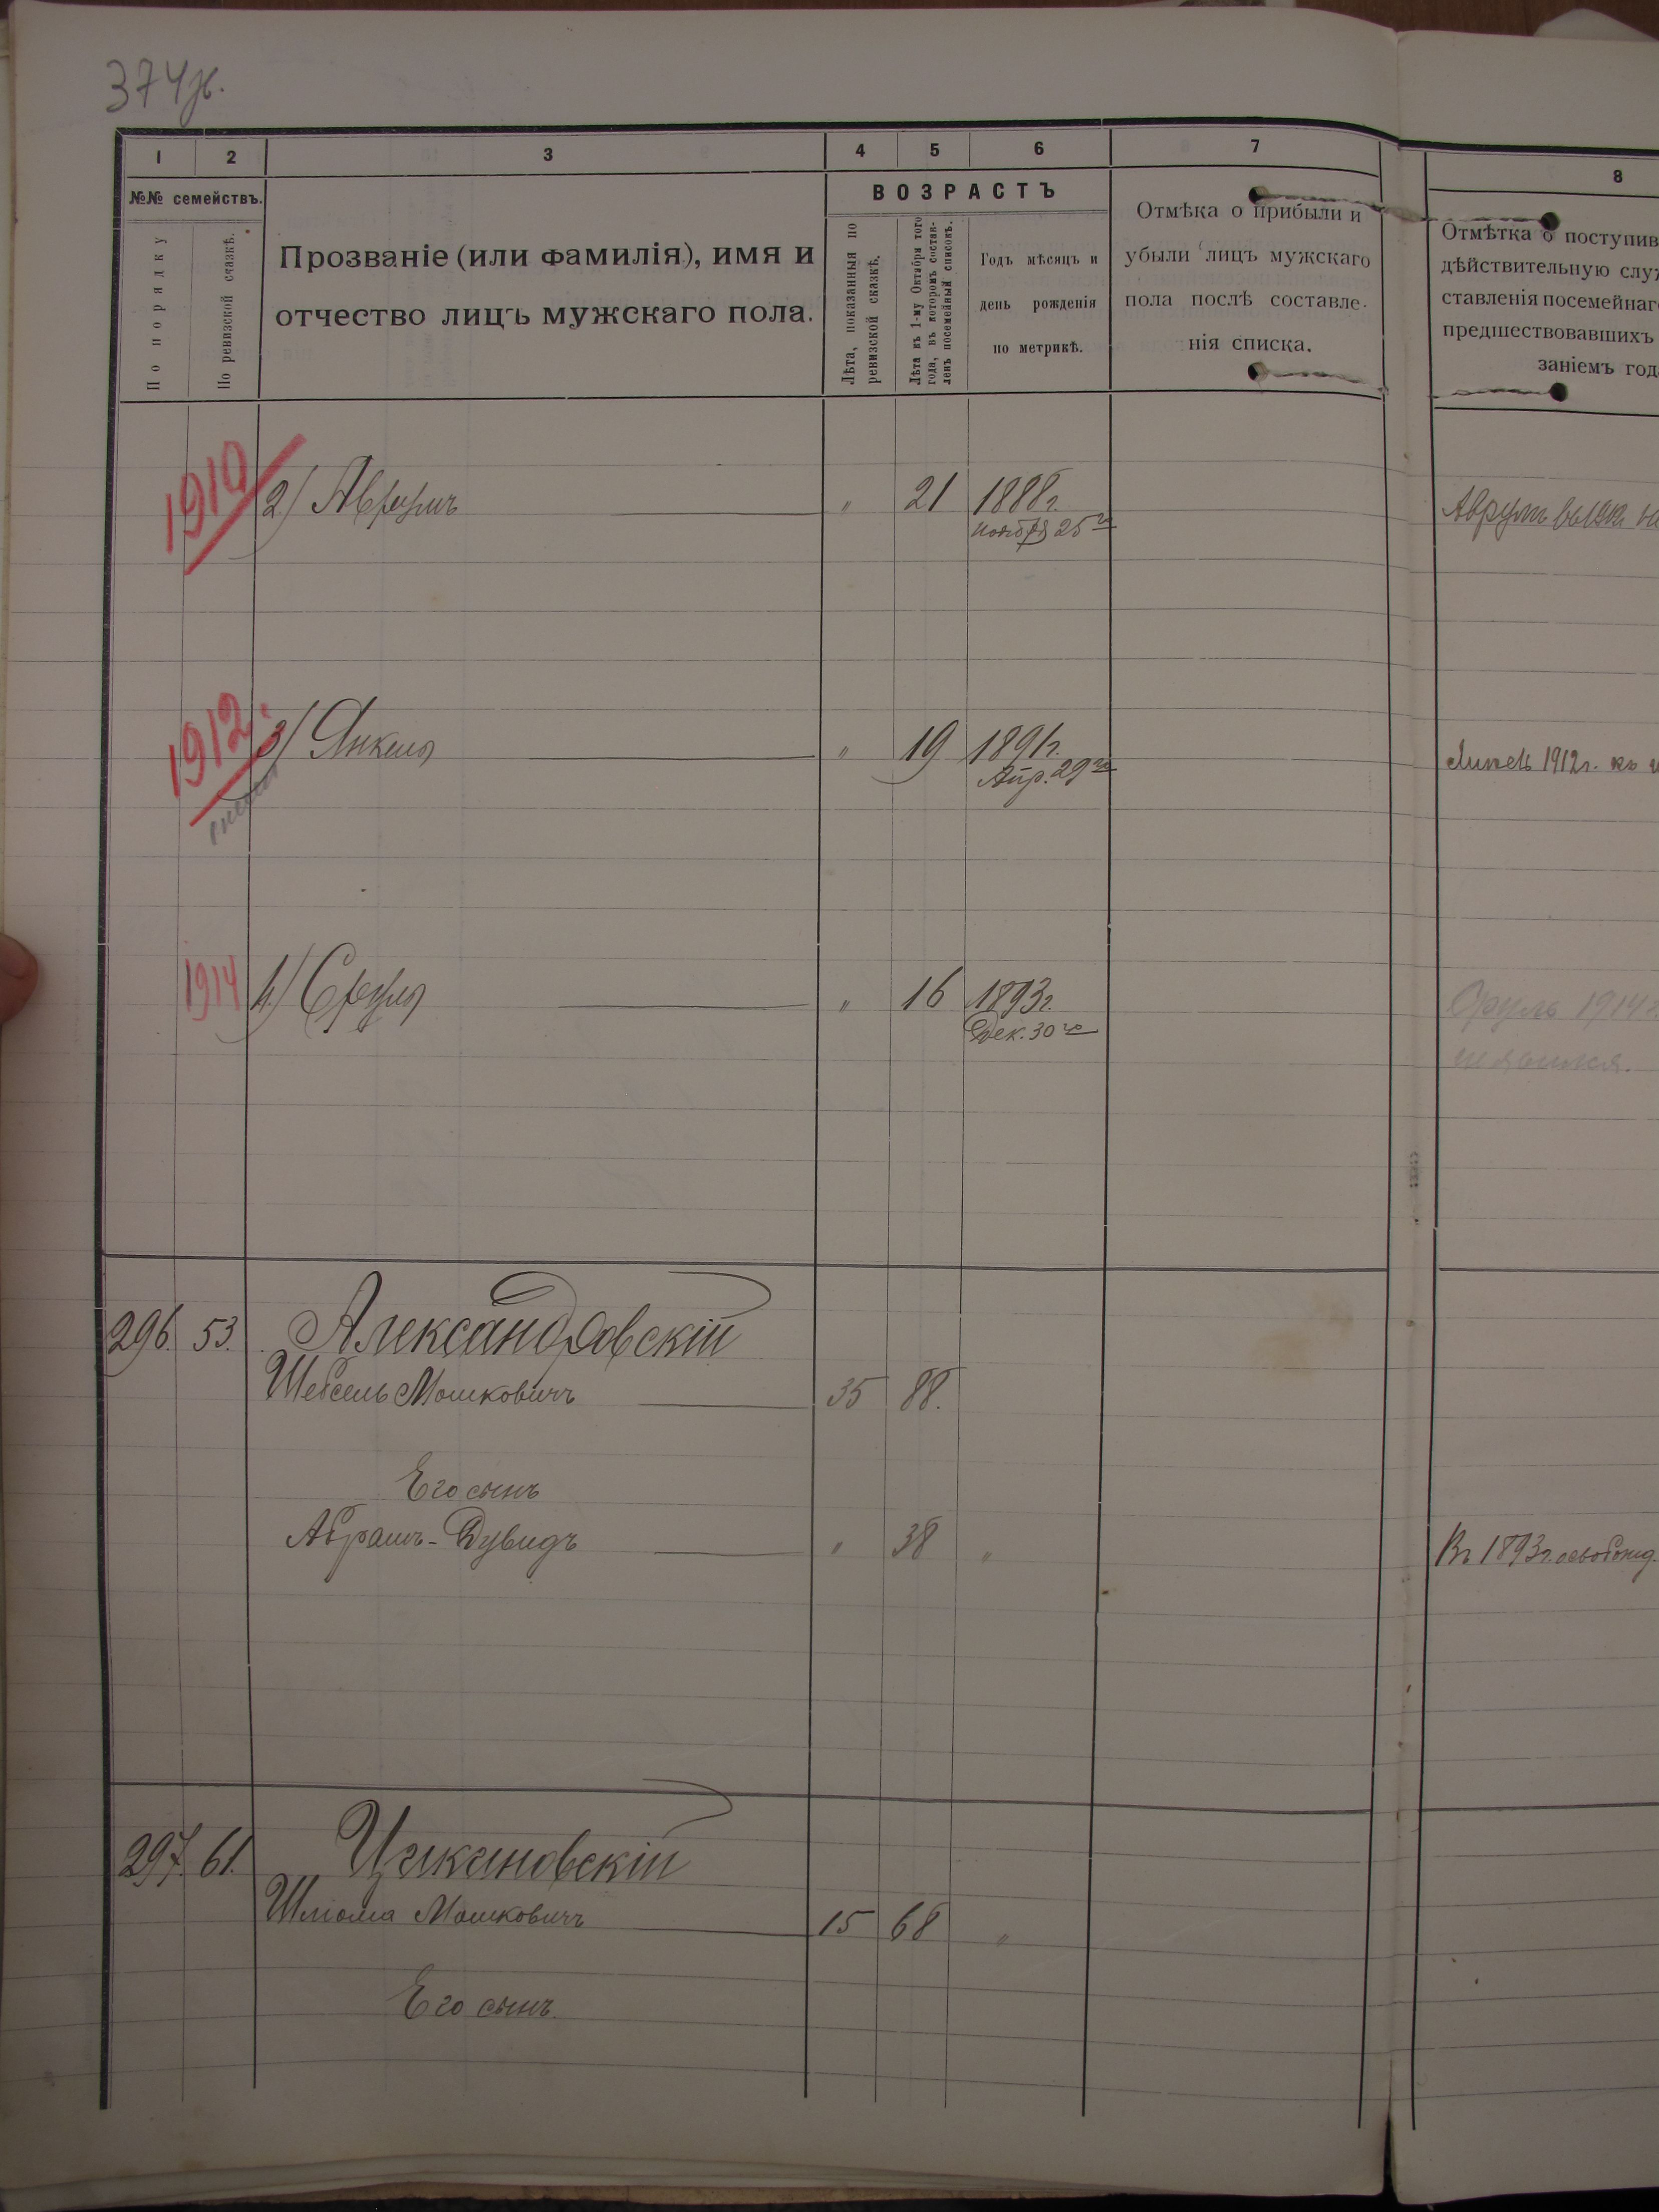 374
1 2 3 4 5 6 7 8
№№ семействъ.
По порядку
По ревизской сказкѣ.
Прозваніе (или фамилія), имя и
отчество лицъ мужскаго пола.
ВОЗРАСТЪ
Лѣта, показанныя по
ревизской сказкѣ.
Лѣта къ 1-му Октября того
года, въ которомъ состав-
ленъ посемейный списокъ.
Годъ мѣсяцъ и
день рожденія
по метрикѣ.
Отмѣка о прибыли и
убыли лицъ мужскаго
пола послѣ составле-
нія списка.
Отмѣтка о поступив
дѣйствительную служ
ставленія посемейнаго
предшествовавшихъ
заніемъ года
1910 2) Аврумъ " 21 1888г.
ноября 25го
Аврумъ
1912. 3) Янкель " 19 1891г.
Апр. 29го
Янкель 1912г. къ
1914 4) Сруль " 16 1893г.
Дек. 30го
Сруль 1914
не явился.
296. 53. Александровскій
Шебсель Мошковичъ 35 88.
Его сынъ
Абрамъ-Дувидъ " 38 "
Въ 1893г. освобожд.
297. 61. Цикиновскій
Шліома Мошковичъ 15 68 "
Его сынъ